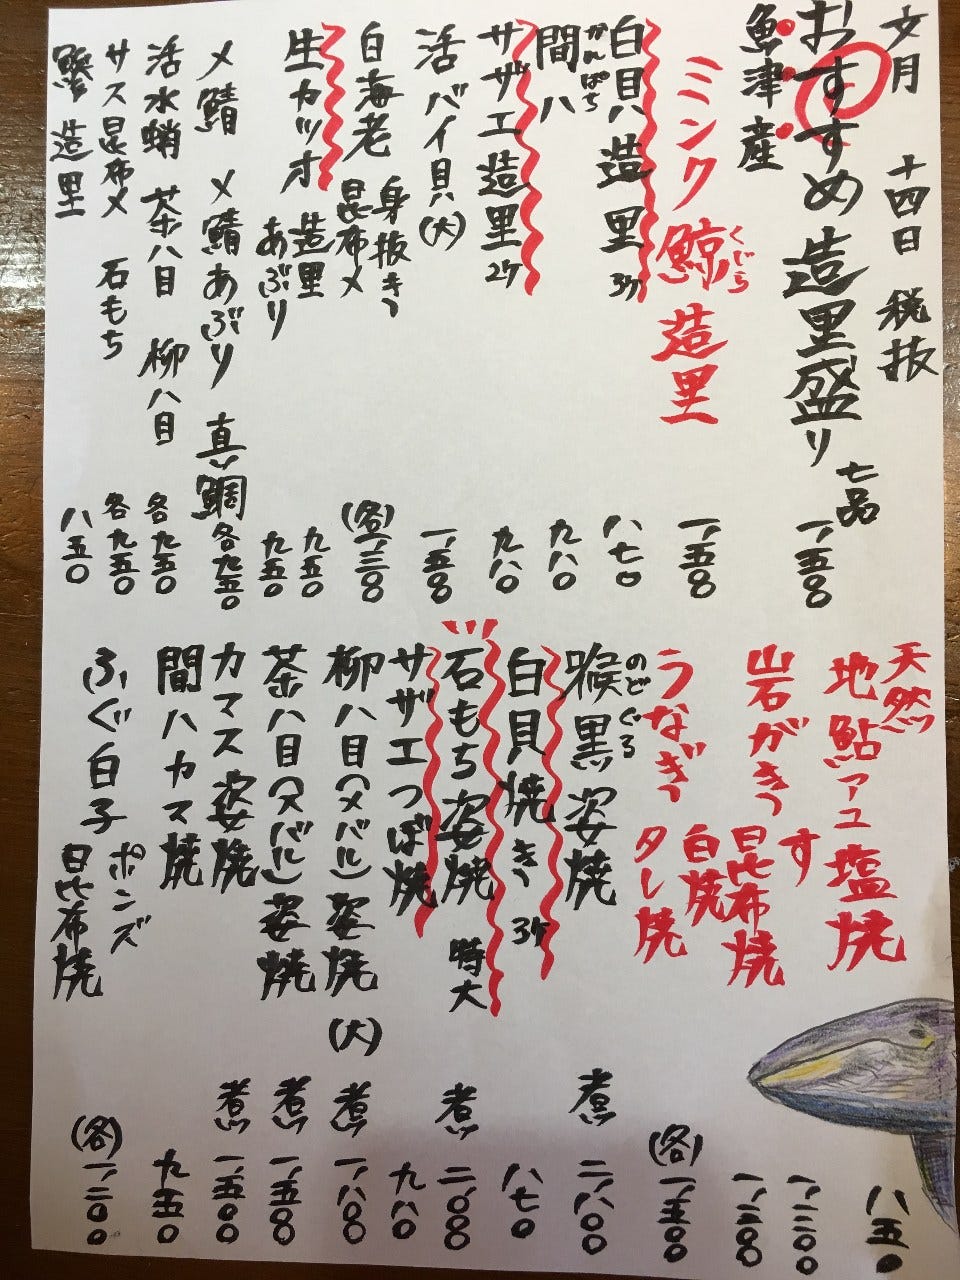 文月 十四日 税抜
おすすめ造里盛り 七品 一、五〇〇
魚津産
ミンク鯨 くじら 造里 一、五〇〇
白貝造里 3ケ 八七〇
間八 かんぱち 九八〇
サザエ造里 2ケ 九八〇
活バイ貝(大) 一、五〇〇
白海老 身抜き 昆布〆 (各)
生カツオ 造里 九五〇
あぶり 九五〇
〆鯖 〆鯖あぶり 真鯛 各九五〇
活水蛸 茶八目 柳八目 各九五〇
サス昆布〆 石もち 各九五〇
造里 八五〇
天然 地鮎 アユ 塩焼 八五〇
岩がき す 一、二〇〇
昆布焼 一、三〇〇
うなぎ 白焼 タレ焼 (各)一、五〇〇
喉黒 のどぐろ 姿焼 煮 二、八〇〇
白貝焼き 3ケ 八七〇
石もち姿焼 特大 煮 二、〇〇〇
サザエつぼ焼 九八〇
柳八目(メバル)姿焼(大) 煮 一、八〇〇
茶八目(メバル)姿焼 煮 一、五〇〇
カマス姿焼 煮 一、五〇〇
間八カマ焼 九五〇
ふぐ白子 ポンズ 昆布焼 (各)一、二〇〇